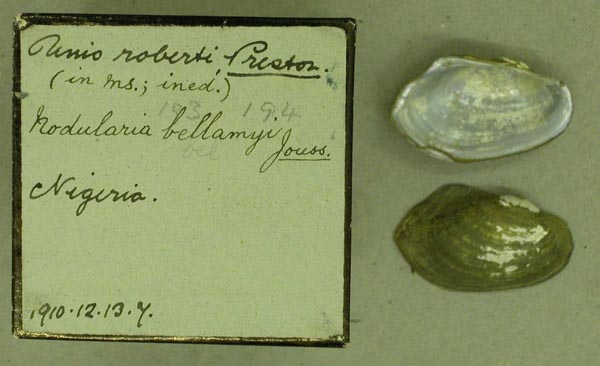 Unio roberti, Preston.
(in ms.; ined.)
193 194
Nodularia bellamyi
Jouss.
Nigeria.
1910.12.13.7.